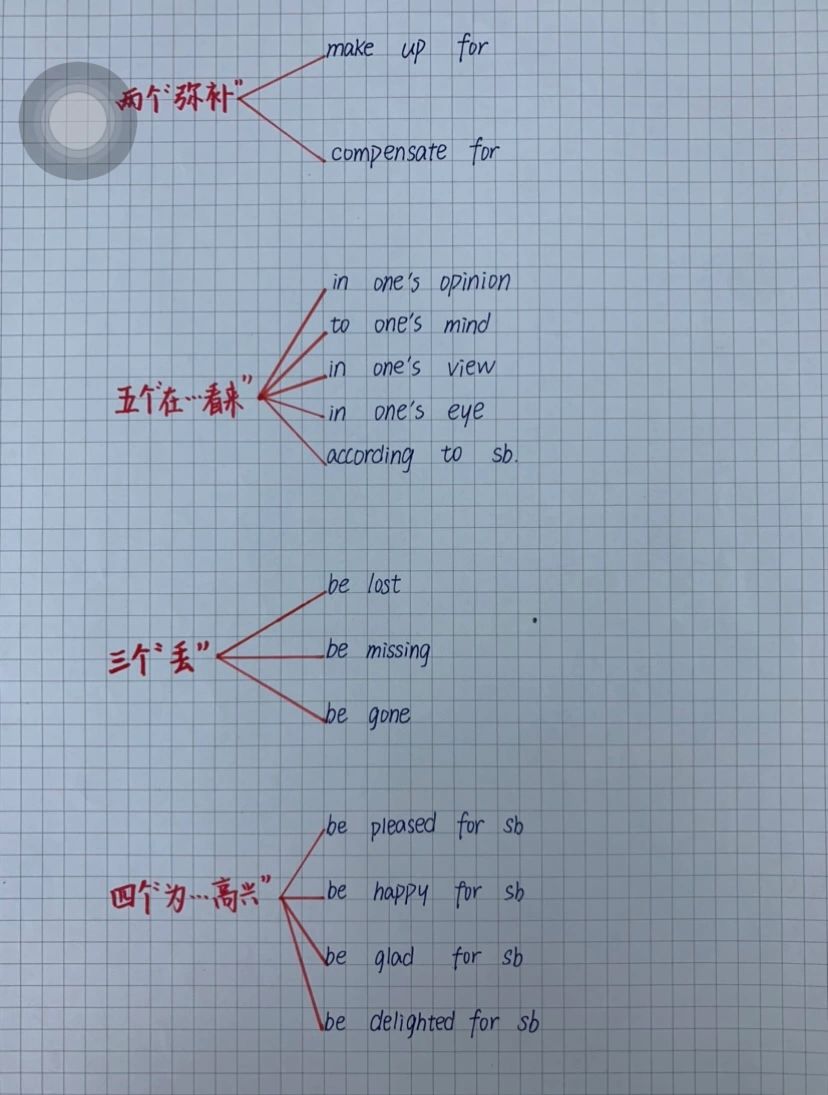 make up for
两个“弥补”
compensate for
in one's opinion
to one's mind
in one's view
五个“在…看来”
in one's eye
according to sb.
be lost
三个“丢”
be missing
be gone
be pleased for sb
四个“为…高兴”
be happy for sb
be glad for sb
be delighted for sb